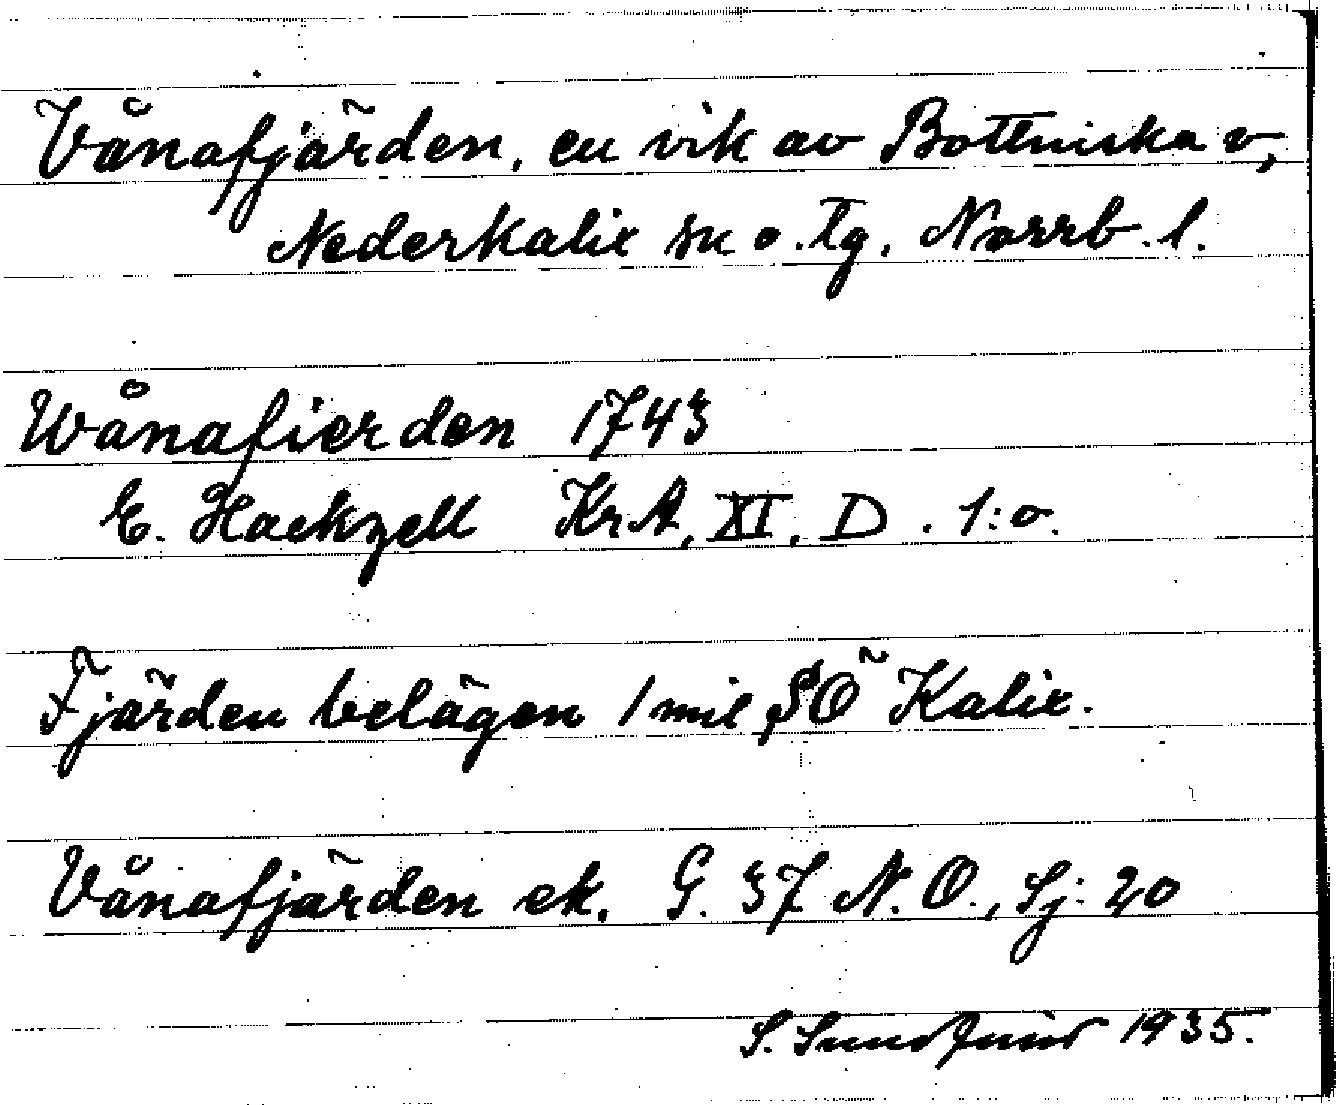 Vånafjärden, en vik av Bottniska v,
Nederkalix sn o. tg. Norrb. l.
Wånafierden 1743
E. Hackzell Kr A, XI, D. 1:o.
Fjärden belägen 1 mil SÖ Kalix.
Vånafjärden ek. G. 37 N. O., Sj: 20
S. 1935.